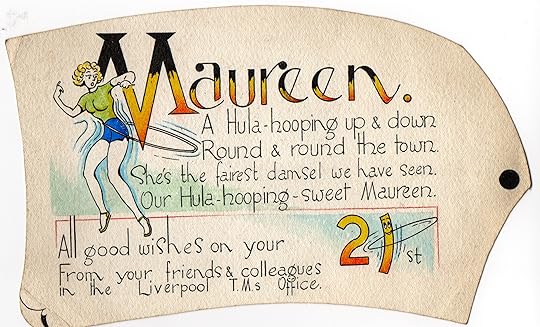 Maureen.
A Hula-hooping up & down
Round & round the town.
She's the fairest damsel we have seen.
Our Hula-hooping-sweet Maureen.
All good wishes on your 21st
From your friends & colleagues
in the Liverpool T.Ms Office.